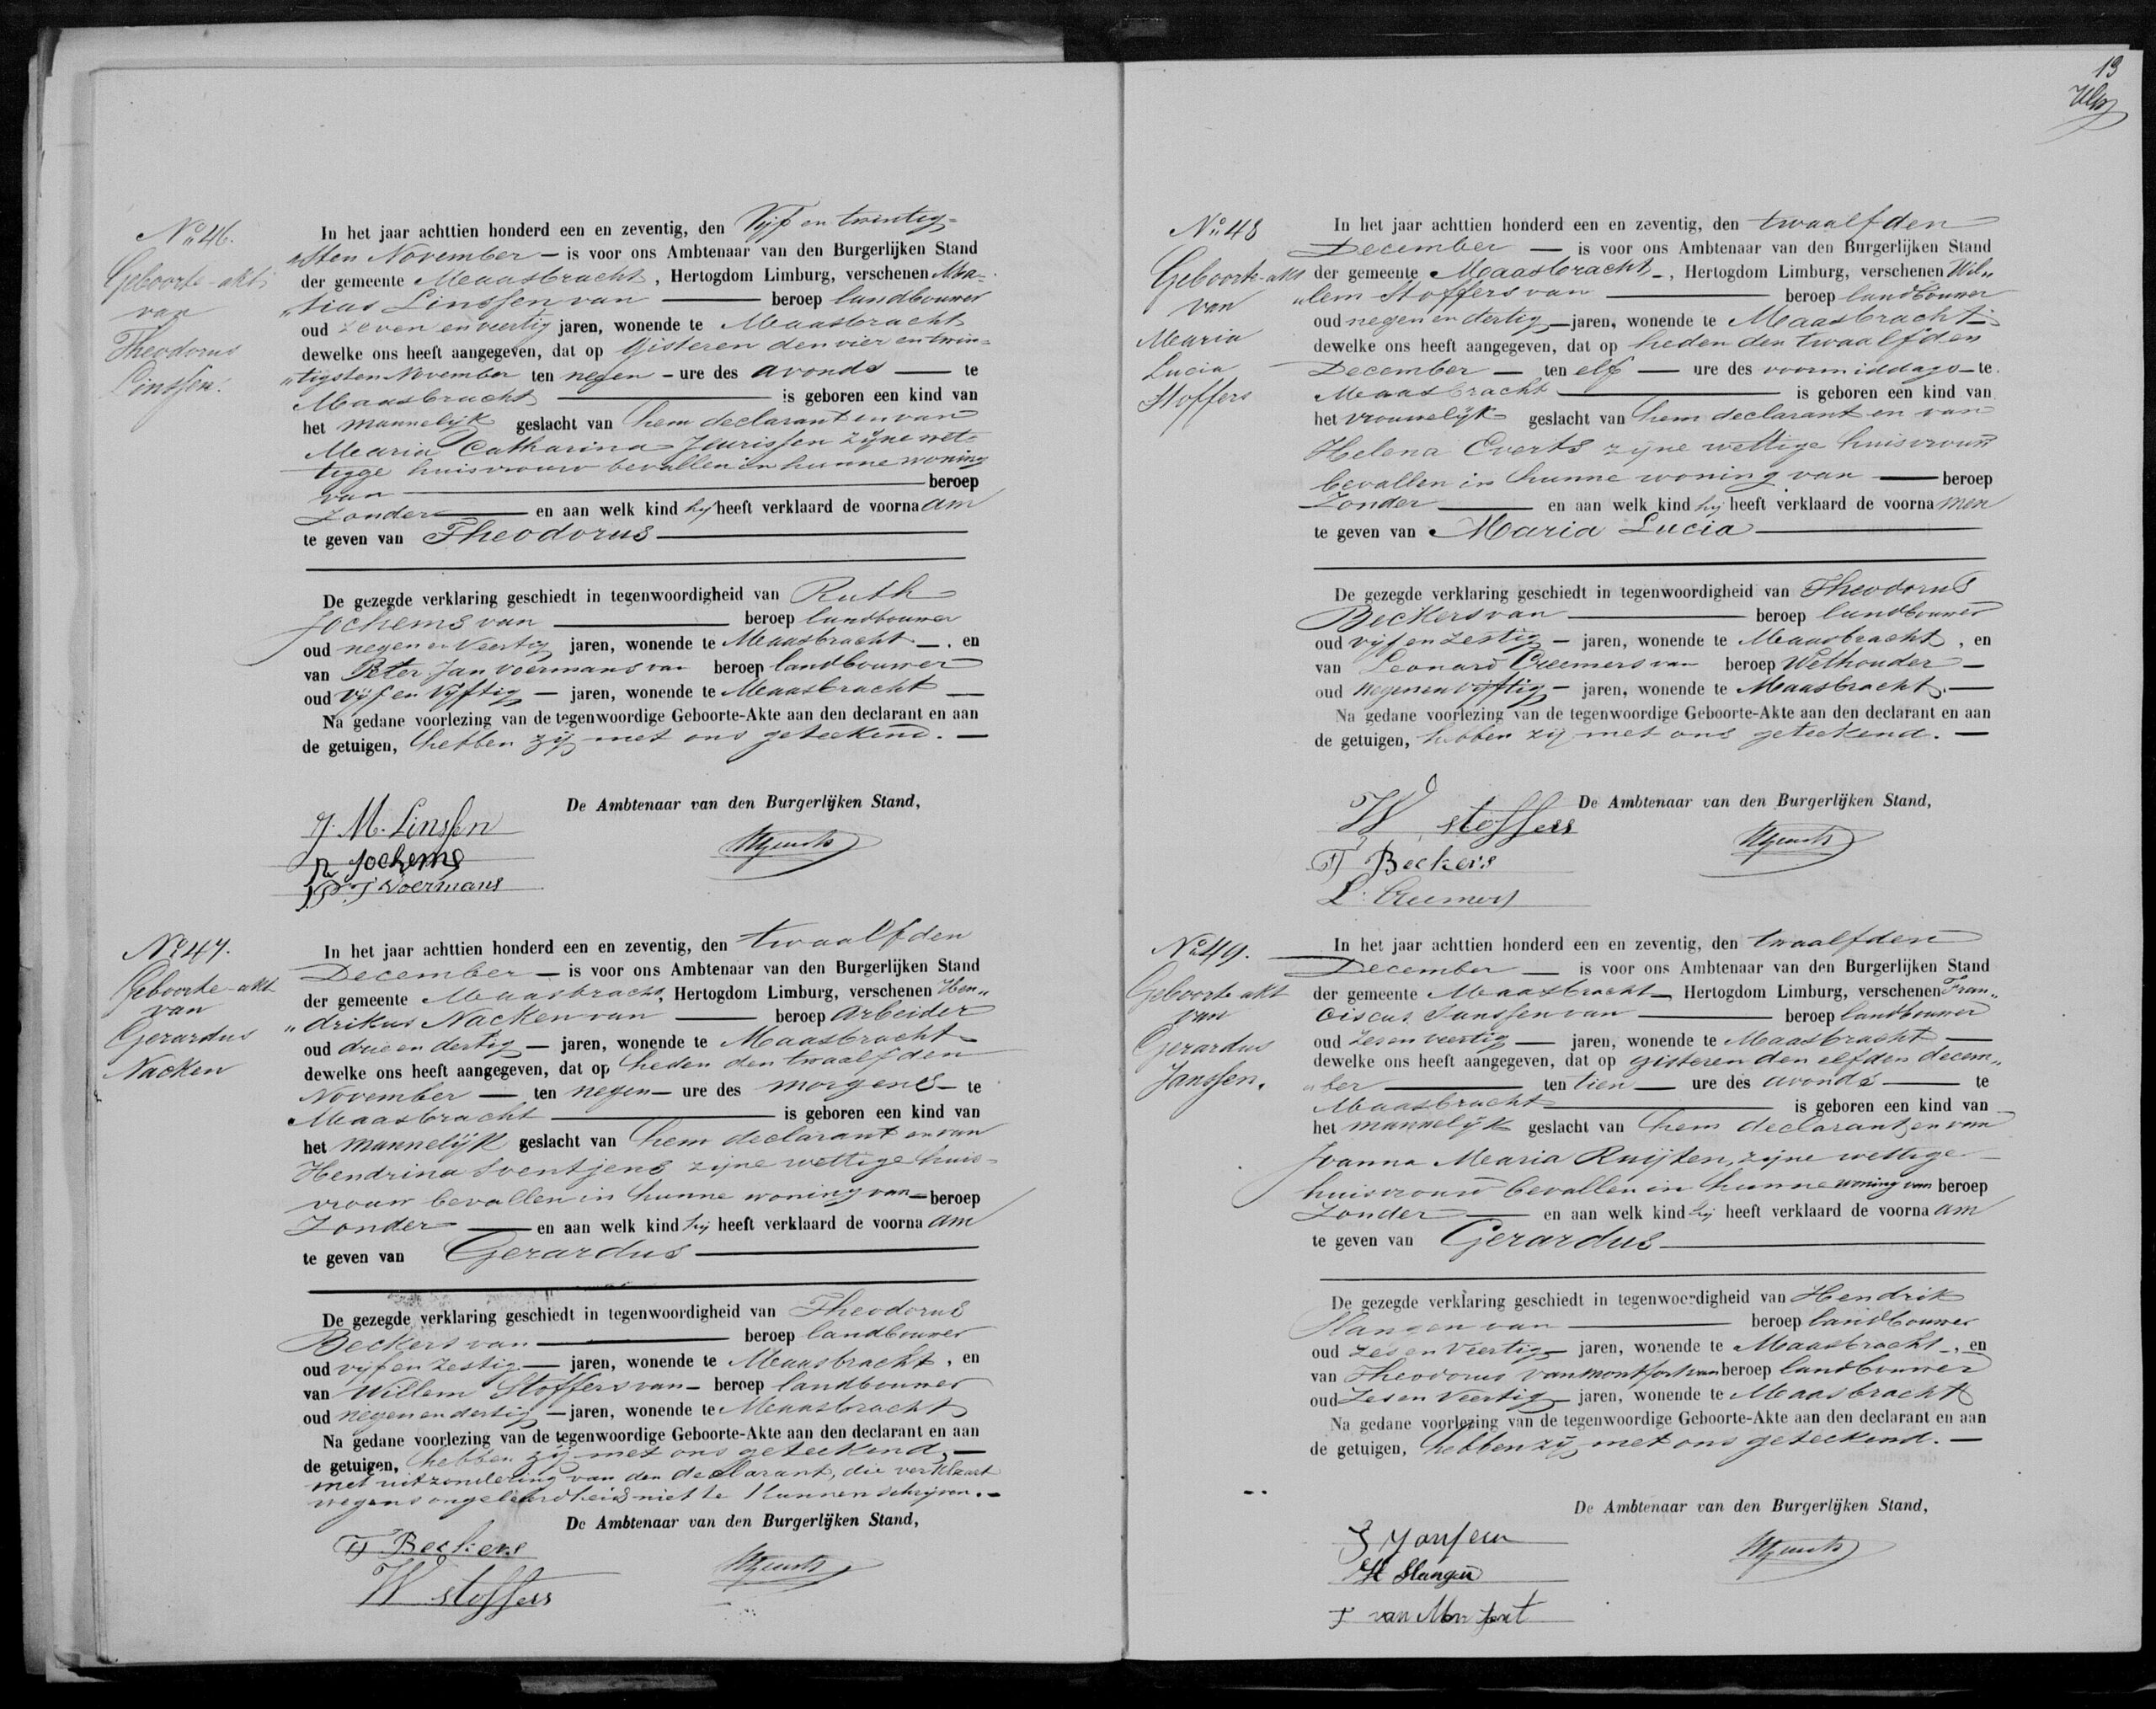 No. 46.
Geboorte-akt
van
Theodorus
Linssen.
In het jaar achttien honderd een en zeventig, den Vijf en twintig=
sten November — is voor ons Ambtenaar van den Burgerlijken Stand
der gemeente Maasbracht, Hertogdom Limburg, verschenen Ma=
„tias Linssen van — beroep landbouwer
oud zeven en veertig jaren, wonende te Maasbracht
dewelke ons heeft aangegeven, dat op Gisteren den vier en twin=
„tigsten November ten negen – ure des avonds — te
Maasbracht — is geboren een kind van
het mannelijk geslacht van hem declarant en van
Maria Catharina Jeurissen zijne wet=
tigge huisvrouw bevallen in hunne woning
van — beroep
Zonder — en aan welk kind hij heeft verklaard de voornaam
te geven van Theodorus —
De gezegde verklaring geschiedt in tegenwoordigheid van Ruth
Jochems van — beroep landbouwer
oud negen en Veertig jaren, wonende te Maasbracht —, en
van Peter Jan Voermans van beroep landbouwer
oud Vijf en Vijftig — jaren, wonende te Maasbracht —
Na gedane voorlezing van de tegenwoordige Geboorte-Akte aan den declarant en aan
de getuigen, hebben zij met ons geteekend. —
De Ambtenaar van den Burgerlijken Stand,
J. M. Linssen
R Jochems
P. J Voermans
No. 47.
Geboorte-akt
van
Gerardus
Nacken
In het jaar achttien honderd een en zeventig, den twaalfden
December — is voor ons Ambtenaar van den Burgerlijken Stand
der gemeente Maasbracht, Hertogdom Limburg, verschenen Hen„
„drikus Nacken van — beroep Arbeider
oud drie en dertig — jaren, wonende te Maasbracht
dewelke ons heeft aangegeven, dat op heden den twaalfden
November — ten negen — ure des morgens — te
Maasbracht — is geboren een kind van
het mannelijk geslacht van hem declarant en van
Hendrina Sventjens zijne wettige huis=
vrouw bevallen in hunne woning van — beroep
Zonder — en aan welk kind hij heeft verklaard de voornaam
te geven van Gerardus —
De gezegde verklaring geschiedt in tegenwoordigheid van Theodorus
Beckers van — beroep landbouwer
oud vijf en zestig — jaren, wonende te Maasbracht, en
van Willem Stoffers van — beroep landbouwer
oud negen en dertig — jaren, wonende te Maasbracht
Na gedane voorlezing van de tegenwoordige Geboorte-Akte aan den declarant en aan
de getuigen, hebben zij met ons geteekend, —
met uitzondering van den declarant, die verklaart
wegens ongeleerdheid niet te kunnen schrijven. —
De Ambtenaar van den Burgerlijken Stand,
T Beckers
W Stoffers
13
No. 48
Geboorte-akt
van
Maria
Lucia
Stoffers
In het jaar achttien honderd een en zeventig, den twaalfden
December — is voor ons Ambtenaar van den Burgerlijken Stand
der gemeente Maasbracht —, Hertogdom Limburg, verschenen Wil„
„lem Stoffers van — beroep landbouwer
oud negen en dertig — jaren, wonende te Maasbracht
dewelke ons heeft aangegeven, dat op heden den twaalfden
December — ten elf — ure des voormiddags — te
Maasbracht — is geboren een kind van
het vrouwelijk geslacht van hem declarant en van
Helena Everts zijne wettige huisvrouw
bevallen in hunne woning van — beroep
Zonder — en aan welk kind hij heeft verklaard de voornamen
te geven van Maria Lucia —
De gezegde verklaring geschiedt in tegenwoordigheid van Theodorus
Beckers van — beroep landbouwer
oud vijf en zestig — jaren, wonende te Maasbracht, en
van Leonard Creemers van beroep Wethouder —
oud negen en vijftig — jaren, wonende te Maasbracht. —
Na gedane voorlezing van de tegenwoordige Geboorte-Akte aan den declarant en aan
de getuigen, hebben zij met ons geteekend. —
De Ambtenaar van den Burgerlijken Stand,
W Stoffers
T Beckers
L. Creemers
No. 49.
Geboorte akt
van
Gerardus
Janssen.
In het jaar achttien honderd een en zeventig, den twaalfden
December — is voor ons Ambtenaar van den Burgerlijken Stand
der gemeente Maasbracht — Hertogdom Limburg, verschenen Fran„
ciscus Janssen van — beroep landbouwer
oud Zes en veertig — jaren, wonende te Maasbracht —
dewelke ons heeft aangegeven, dat op gisteren den elfden decem„
„ber — ten tien — ure des avonds — te
Maasbracht — is geboren een kind van
het mannelijk geslacht van hem declarant en van
Joanna Maria Ruijten, zijne wettige
huisvrouw bevallen in hunne woning van beroep
Zonder — en aan welk kind hij heeft verklaard de voornaam
te geven van Gerardus —
De gezegde verklaring geschiedt in tegenwoordigheid van Hendrik
Slangen van — beroep landbouwer
oud zes en Veertig — jaren, wonende te Maasbracht —, en
van Theodorus van montfort van beroep landbouwer
oud Zes en Veertig — jaren, wonende te Maasbracht
Na gedane voorlezing van de tegenwoordige Geboorte-Akte aan den declarant en aan
de getuigen, hebben zij met ons geteekend. —
De Ambtenaar van den Burgerlijken Stand,
Janssen
H Slangen
T van Monfort